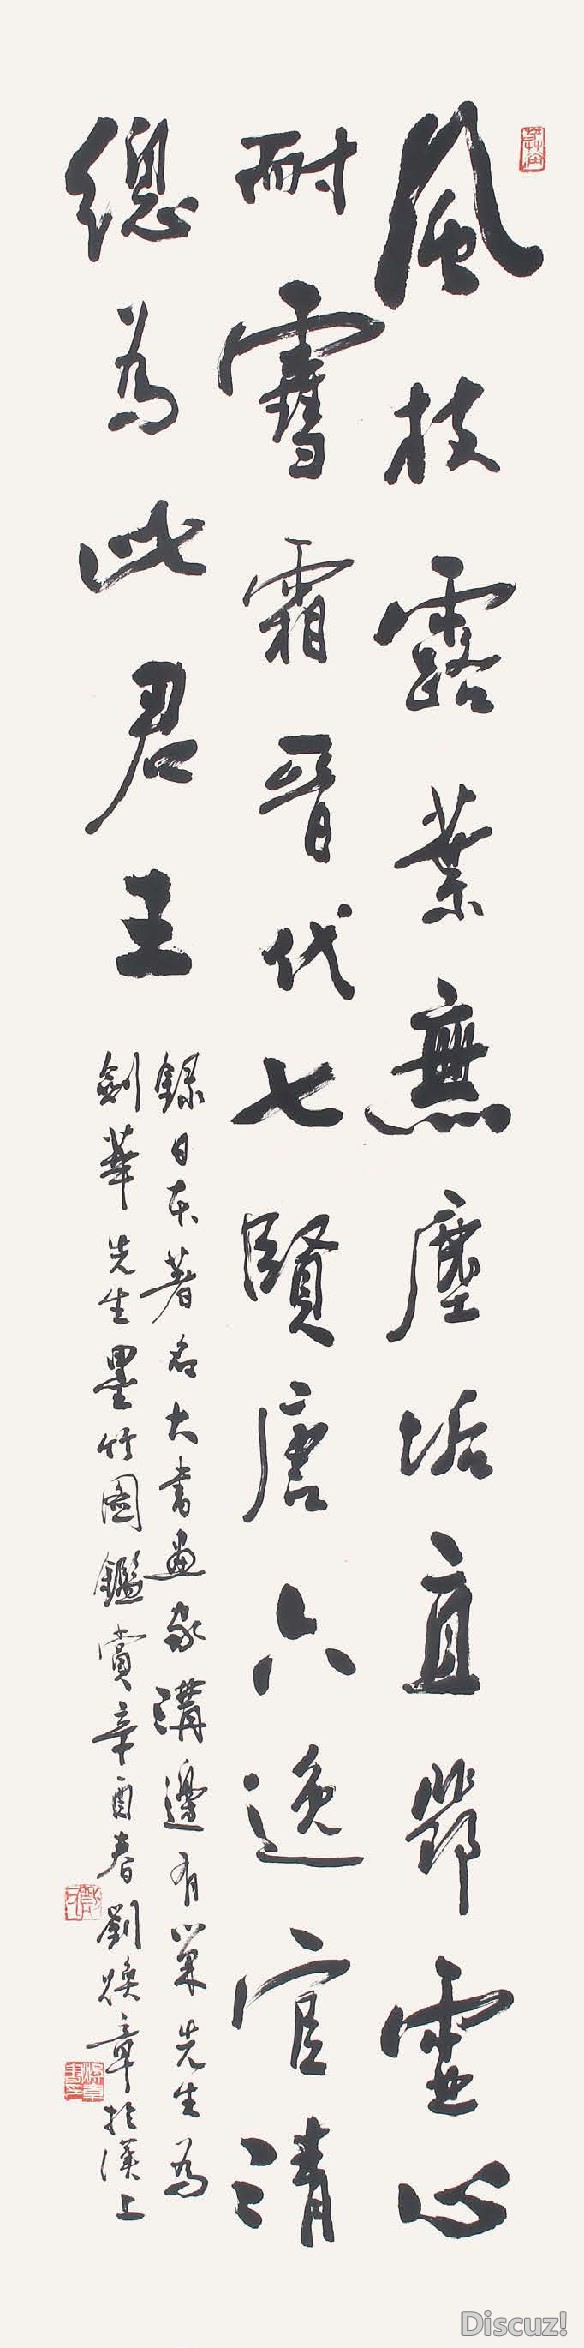 風枝露葉無塵垢直節靈心
耐雪霜晉代七賢唐六逸官清
總為此君王
錄日本著名大書畫家溝邊有巢先生為
劍華先生墨竹圖鑑賞辛酉春劉煥章於漢上
Discuz!